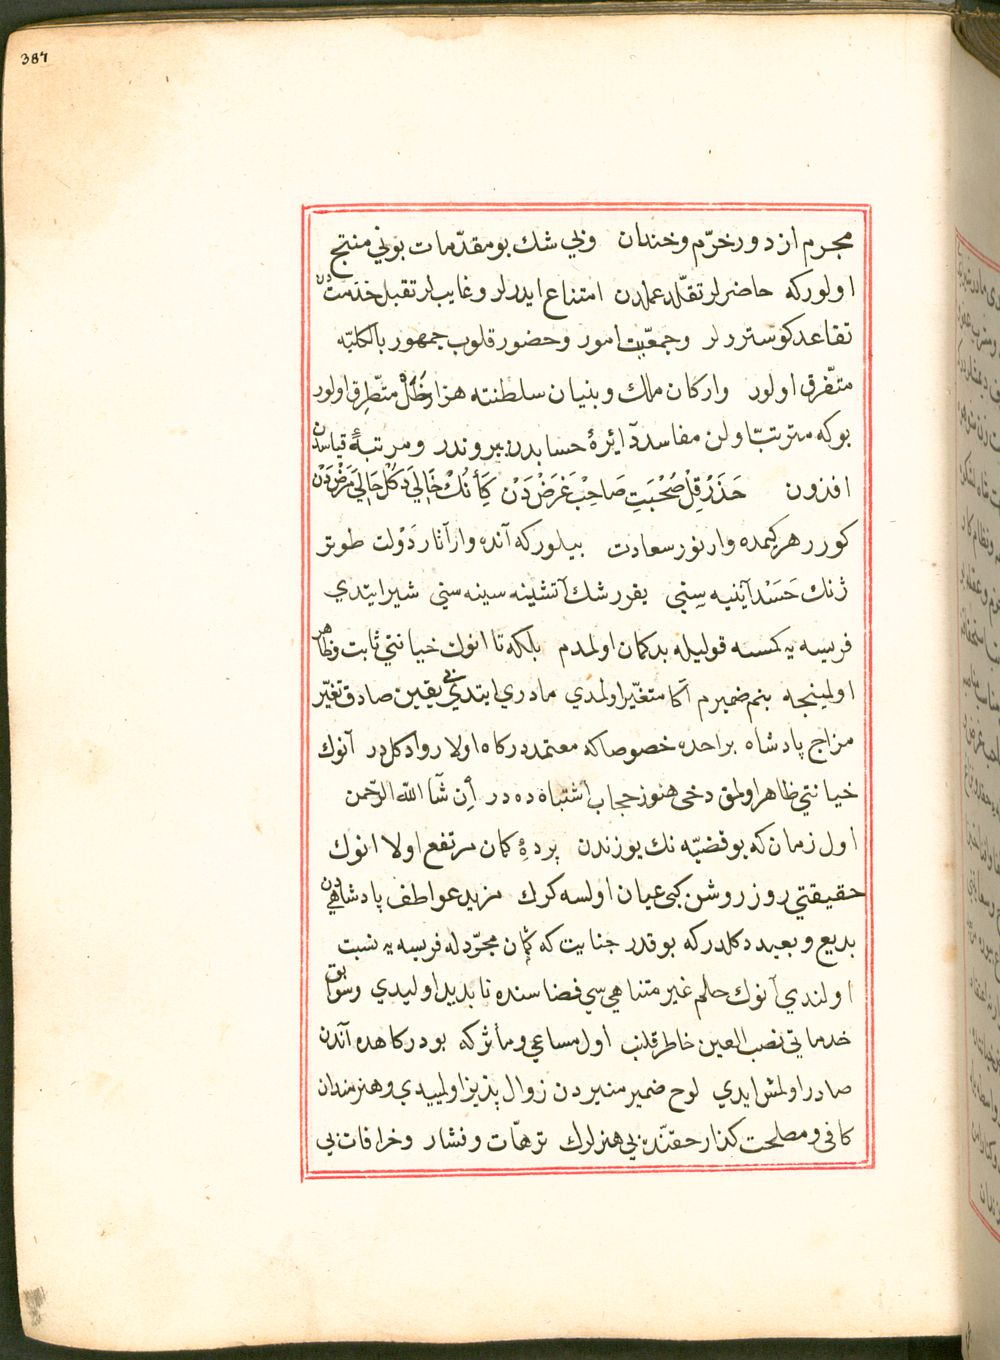 387
مجرم ازدور خرّم وخندان وبی شك بو مقدّمات بونی منتج
اولور كه حاضرلر تقلّد عملدن امتناع ایدرلر وغایبلر تقبل خدمتدن
تقاعد كوسترلر وجمعّیت امور وحضور قلوب جمهور بالكلیّه
متفّرق اولور واركان ملك وبنیان سلطنته هزار خلل متطّرق اولور
بو كه مترتبّ اولن مفاسد دآئرۀ حسابدن بیروندر ومرتبۀ قیاسدن
افزون حَذَرْ قِلْ صُحْبَتِ صَاحِبْ غَرَضْدَنْ كَأنُكْ خَالِي دَكُلْ حَالِي مَرَضْدَنْ
كورر هر كیمده وار نور سعادت بیلور كه آنده وار آثار دَوْلت طوتر
ژنك حَسَدْ آیینیه سِنِی یقر رشك آتشینه سینه سنی شیر ایتدی
فریسه یه كمسه قولیله بدكمان اولمدم بلكه تا انوك خیانتی ثابت وظاهر
اولمینجه بنم ضمیرم اكا متغیّر اولمدی مادری ایتدی بی یقین صادق تغیّر
مزاج پادشاه بر احده خصوصا كه معتمد دركاه اولا روا دكلدر آنوك
خیانتی ظاهر اولمق دخی هنوز حجاب اشتباه ده در إن شآ الله الرّحمن
اول زمان كه بو قضیّه نك یوزندن پردۀ كمان مرتفع اولا انوك
حقیقتی روز روشن كبی عیان اولسه كرك مزید عواطف پادشاهیدن
بدیع وبعید دكلدر كه بو قدر جنایت كه كمان مجرّدله فریسه یه نسبت
اولندی آنوك حلم غیر متناهی سی فضاسنده نابدید اولیدی وسوابق
خدماتی نصب العین خاطر قلنب اول مساعی ومأثر كه بو دركاهده آندن
صادر اولمش ایدی لوح ضمیر منیردن زوال پذیر اولمییدی وهنرمندان
كافی ومصلحت كذار حقنّده بی هنرلرك ترهّات وفشار وخرافات بی